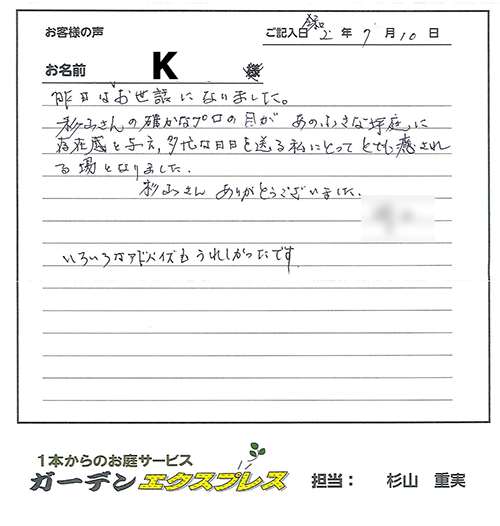 お客様の声
ご記入日 令和2年7月10日
お名前 K 様
昨日はお世話になりました。
杉山さんの確かなプロの目が あの小さな坪庭に
存在感を与え、多忙な日日を送る私にとってとても癒され
る場となりました.
杉山さん ありがとうございました.
いろいろなアドバイスもうれしかったです
1本からのお庭サービス
ガーデンエクスプレス 担当： 杉山 重実